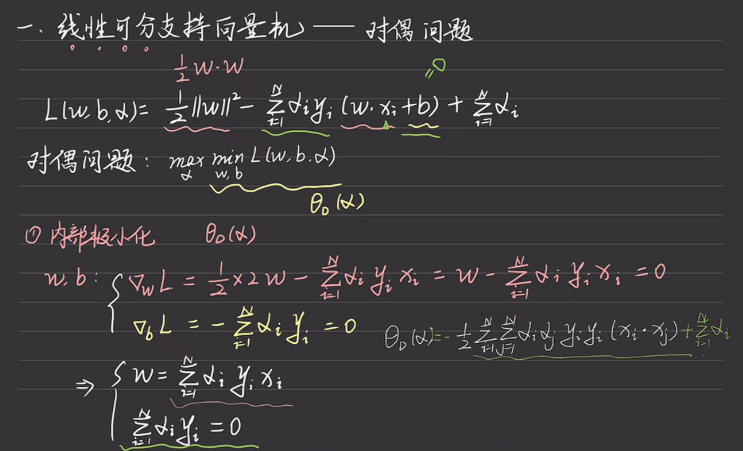 一、线性可分支持向量机 —— 对偶问题
½ w·w
=0
L(w,b,α) = ½‖w‖² - Σ_{i=1}^N α_i y_i (w·x_i + b) + Σ_{i=1}^N α_i
对偶问题: max_α min_{w,b} L(w,b,α)
θ_D(α)
① 内部极小化 θ_D(α)
w,b: { ∇_w L = ½×2w - Σ_{i=1}^N α_i y_i x_i = w - Σ_{i=1}^N α_i y_i x_i = 0
∇_b L = - Σ_{i=1}^N α_i y_i = 0
θ_D(α) = -½ Σ_{i=1}^N Σ_{j=1}^N α_i α_j y_i y_i (x_i·x_j) + Σ_{i=1}^N α_i
⇒ { w = Σ_{i=1}^N α_i y_i x_i
Σ_{i=1}^N α_i y_i = 0